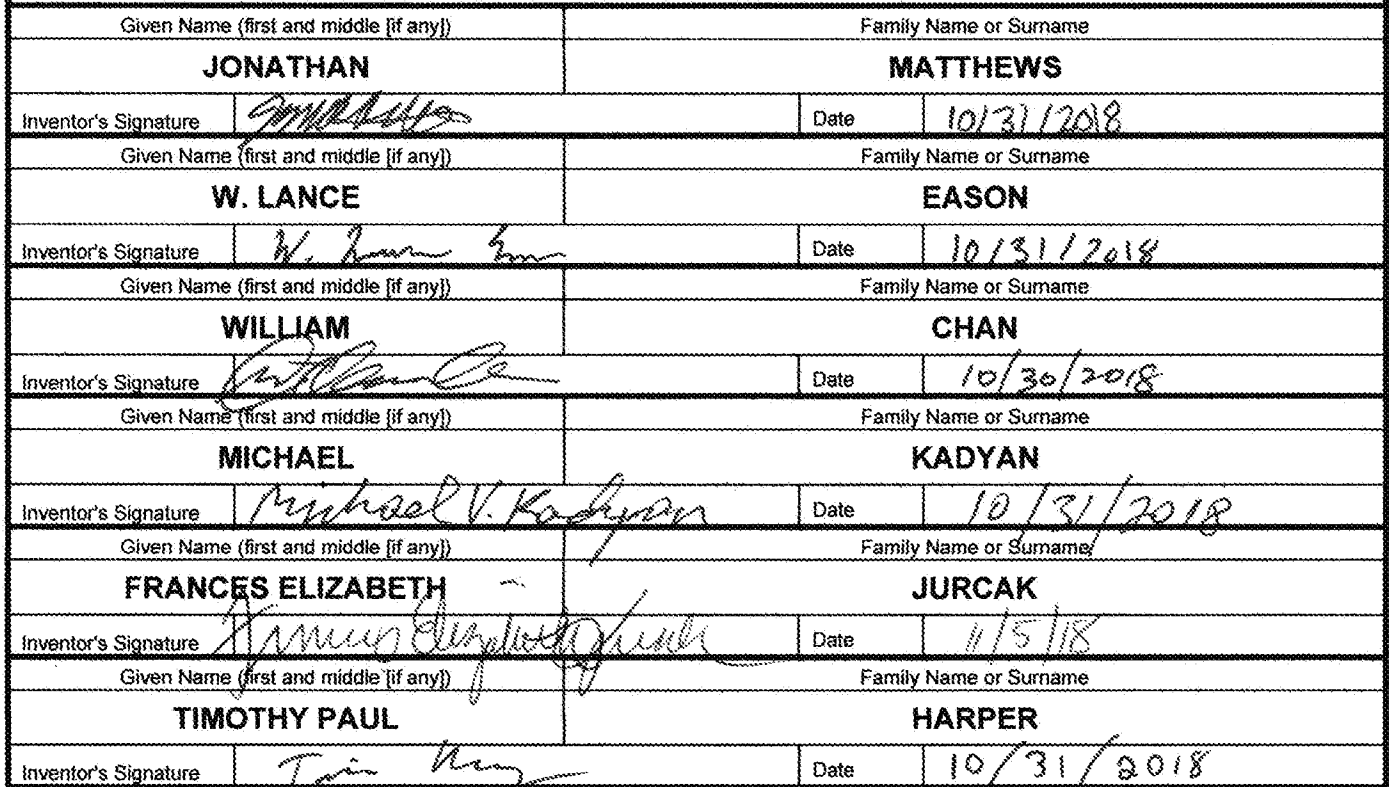 Given Name (first and middle [if any]) Family Name or Surname
JONATHAN MATTHEWS
Inventor's Signature Date 10/31/2018
Given Name (first and middle [if any]) Family Name or Surname
W. LANCE EASON
Inventor's Signature W. Date 10/31/2018
Given Name (first and middle [if any]) Family Name or Surname
WILLIAM CHAN
Inventor's Signature Date 10/30/2018
Given Name (first and middle [if any]) Family Name or Surname
MICHAEL KADYAN
Inventor's Signature Michael V. Kadyan Date 10/31/2018
Given Name (first and middle [if any]) Family Name or Surname
FRANCES ELIZABETH JURCAK
Inventor's Signature Frances Elizabeth Jurcak Date 11/5/18
Given Name (first and middle [if any]) Family Name or Surname
TIMOTHY PAUL HARPER
Inventor's Signature Date 10/31/2018